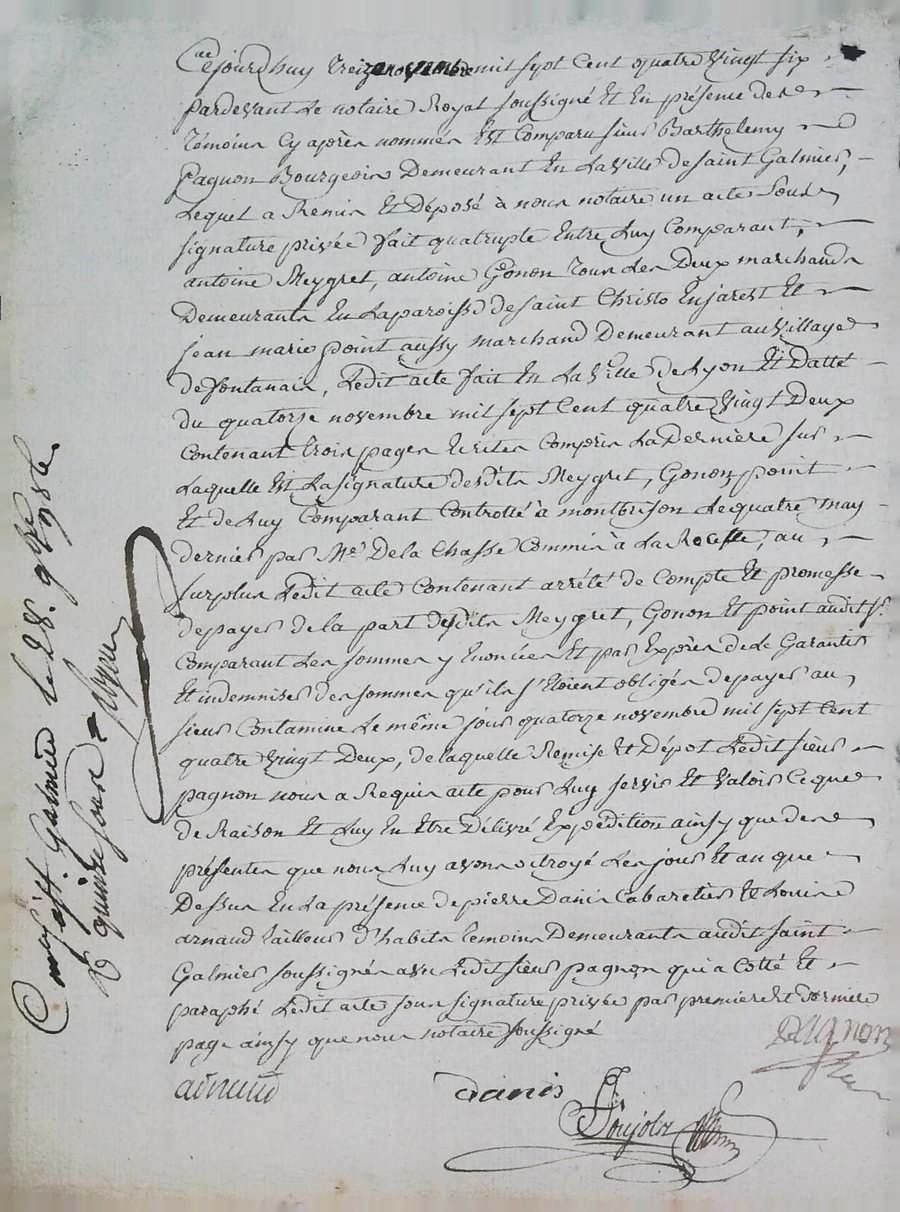 Cejourdhuy treize novembre mil sept Cent quatre Vingt six
pardevant Le notaire Royal soussigné Et En présence des
témoins Cy après nommés Est Comparu sieur Barthelemy
pagnon Bourgeois Demeurant En La Ville de saint Galmier,
Lequel a Remis Et Déposé à nous notaire un acte Sous
signature privée fait quatruple Entre Luy Comparant,
antoine Meygret, antoine Gonon tous Les Deux marchands
Demeurants En La paroisse de saint Christo En jarest Et
jean marie point aussy marchand Demeurant au Village
de fontanais, Ledit acte fait En La Ville de Lyon Et Datté
du quatorze novembre mil sept Cent quatre Vingt Deux
Contenant trois pages Ecrites Compris La Dernière sur
Laquelle Est La signature desdits Meygret, Gonon, point
Et de Luy Comparant Controllé à montbrison Le quatre may
dernier par Me De la Chasse Commis à La Recette, au
surplus Ledit acte Contenant arrêté de Compte Et promesse
de payer de la part desdits Meygret, Gonon Et point audit Sr.
Comparant des sommes y Enoncées Et par Exprès de le Garantir
Et indemniser des sommes qu'ils s'Etoient obligés de payer au
sieur Contamine Le même jour quatorze novembre mil sept Cent
quatre Vingt Deux, de laquelle Remise Et Dépot Ledit sieur
pagnon nous a Requis acte pour Luy servir Et Valoir Ce que
de Raison Et Luy En Etre Délivré Expédition ainsy que des
présentes que nous Luy avons octroyé Les jour Et an que
Dessus En La présence de pierre Danis Cabaretier Et Louis
arnaud tailleur d'habits temoins Demeurants audit saint
Galmier soussignés avec Ledit sieur pagnon qui a Cotté Et
paraphé Ledit acte sous signature privée par première Et dernière
page ainsy que nous notaire soussigné
pagnon
arnaud Danis
Poujols
St. Galmier le 28. 9bre 1786
quinze sous